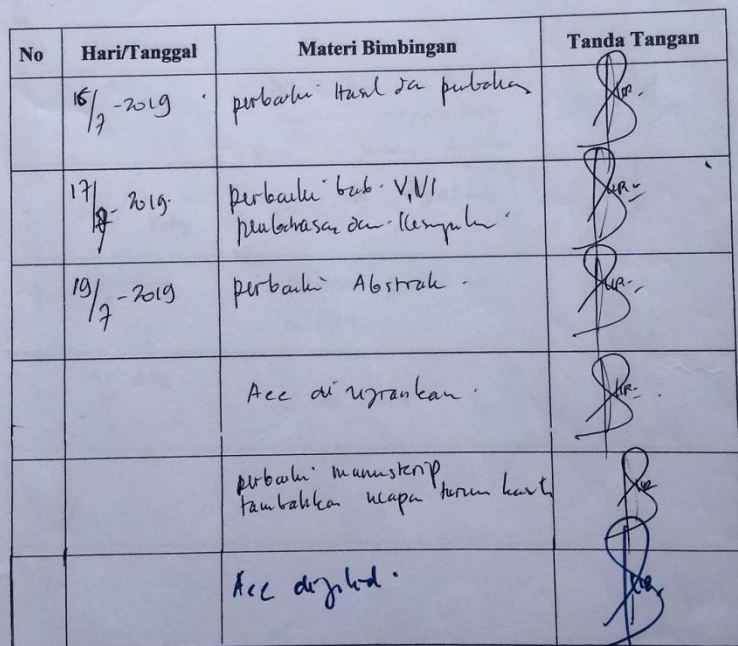 No Hari/Tanggal Materi Bimbingan Tanda Tangan
16/7 - 2019 perbaiki Hasil dan
17/ - 2019 perbaiki bab. V, VI
pembahasan dan Kesimpulan.
19/7 - 2019 perbaiki Abstrak.
Acc di ujiankan.
perbaiki manuskrip
tambahkan ucapan terima kasih
Acc dijilid.